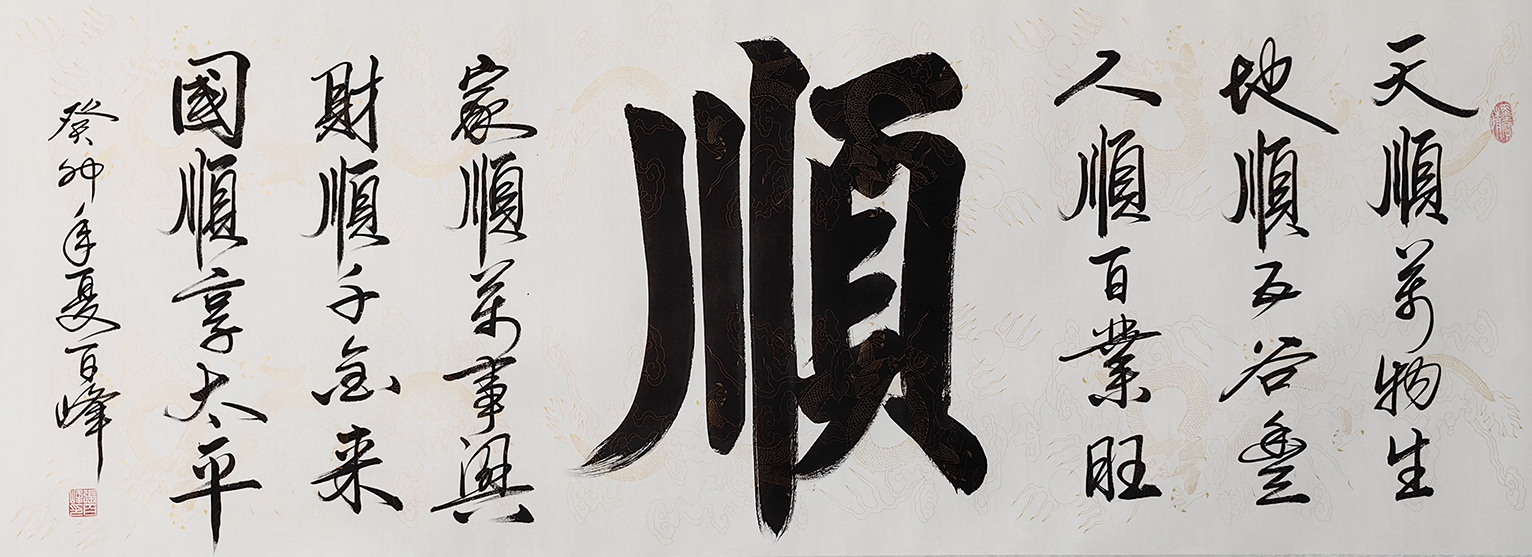 天順萬物生
地順五谷豐
人順百業旺
順
家順萬事興
財順千金来
國順享太平
癸卯年夏百峰